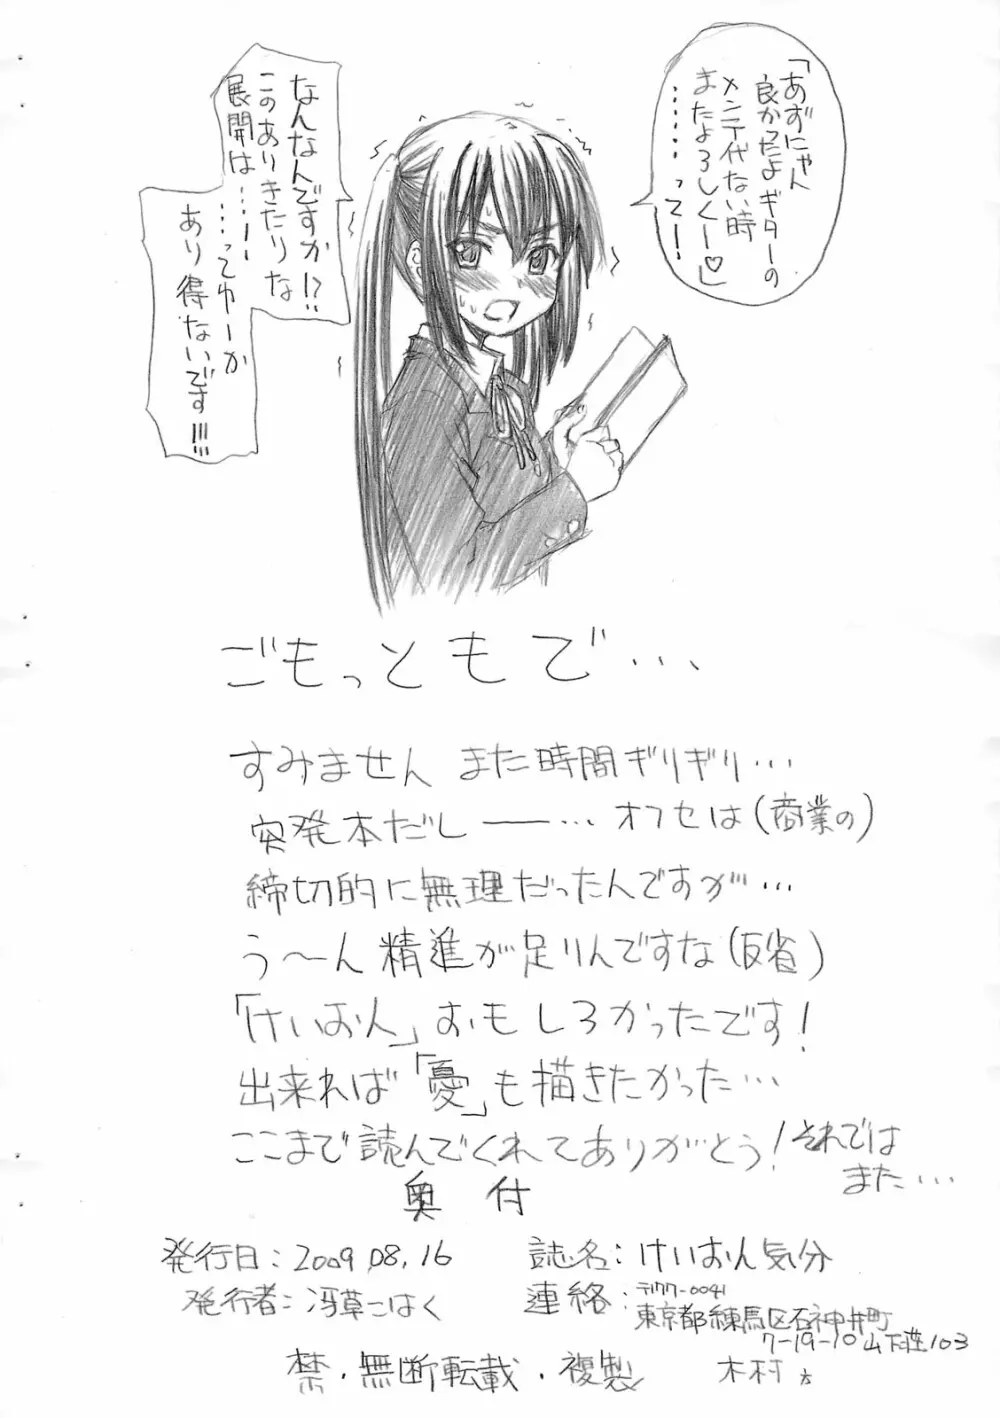 「あずにゃん
良かったよギターの
メンテ代ない時
またよろしくー♡」
……って!
なんなんですか!?
このありきたりな
展開は……!
…ってゆーか
あり得ないです!!!
ごもっともで…
すみません また時間ギリギリ…
突発本だし――… オフセは(商業の)
締切的に無理だったんですが…
う〜ん 精進が足りんですな(反省)
「けいおん」おもしろかったです!
出来れば「憂」も描きたかった…
ここまで読んでくれてありがとう! それでは
また…
奥付
発行日:2009.08.16
誌名:けいおん気分
発行者:冴草こはく
連絡:〒177-0041
東京都練馬区石神井町
7-19-10 山下荘103
木村
禁・無断転載・複製